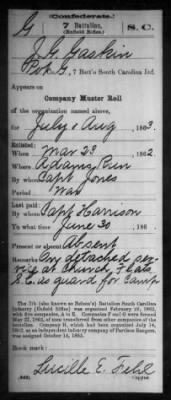 (Confederate.)
G 7 Battalion, S. C.
(Enfield Rifles.)
J. G. Gaskin
Pvt G, 7 Batt'n South Carolina Inf.
Appears on
Company Muster Roll
of the organization named above,
for July & Aug, 1863.
Enlisted:
When Mar 23, 1862.
Where Adams Run
By whom Capt Jones
Period War
Last paid:
By whom Capt Harrison
To what time June 30, 186
Present or absent Absent
Remarks: On detached ser-
vice at church, Flats
S. C. as guard for Camp
The 7th (also known as Nelson's) Battalion South Carolina
Infantry (Enfield Rifles) was organized February 22, 1862,
with five companies, A to E. Companies F and G were assigned
May 22, 1862, of men transferred from other companies of the
battalion. Company H, which had been organized July 14,
1862, as an independent company of Partisan Rangers,
was assigned October 16, 1862.
Book mark:
Lucille E. Fehl
(642) Copyist.